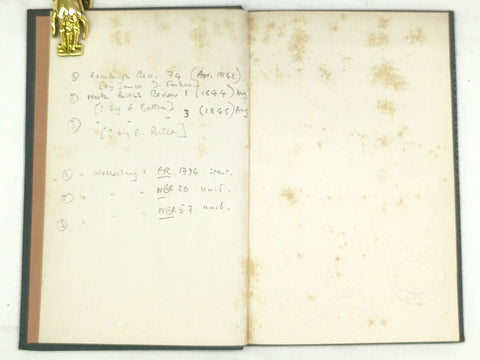 ① Edinburgh Rev. 74 (Apr. 1842)
[by James D. Forbes]
② North British Review 1 (1844) Aug
[? by E. Botten]
③ " " " 3 (1845) Aug
[? by E. Botten]
① = Wellesley = ER 1794
② = " " NBR 20 unit.
③ " " NBR 57 unit.